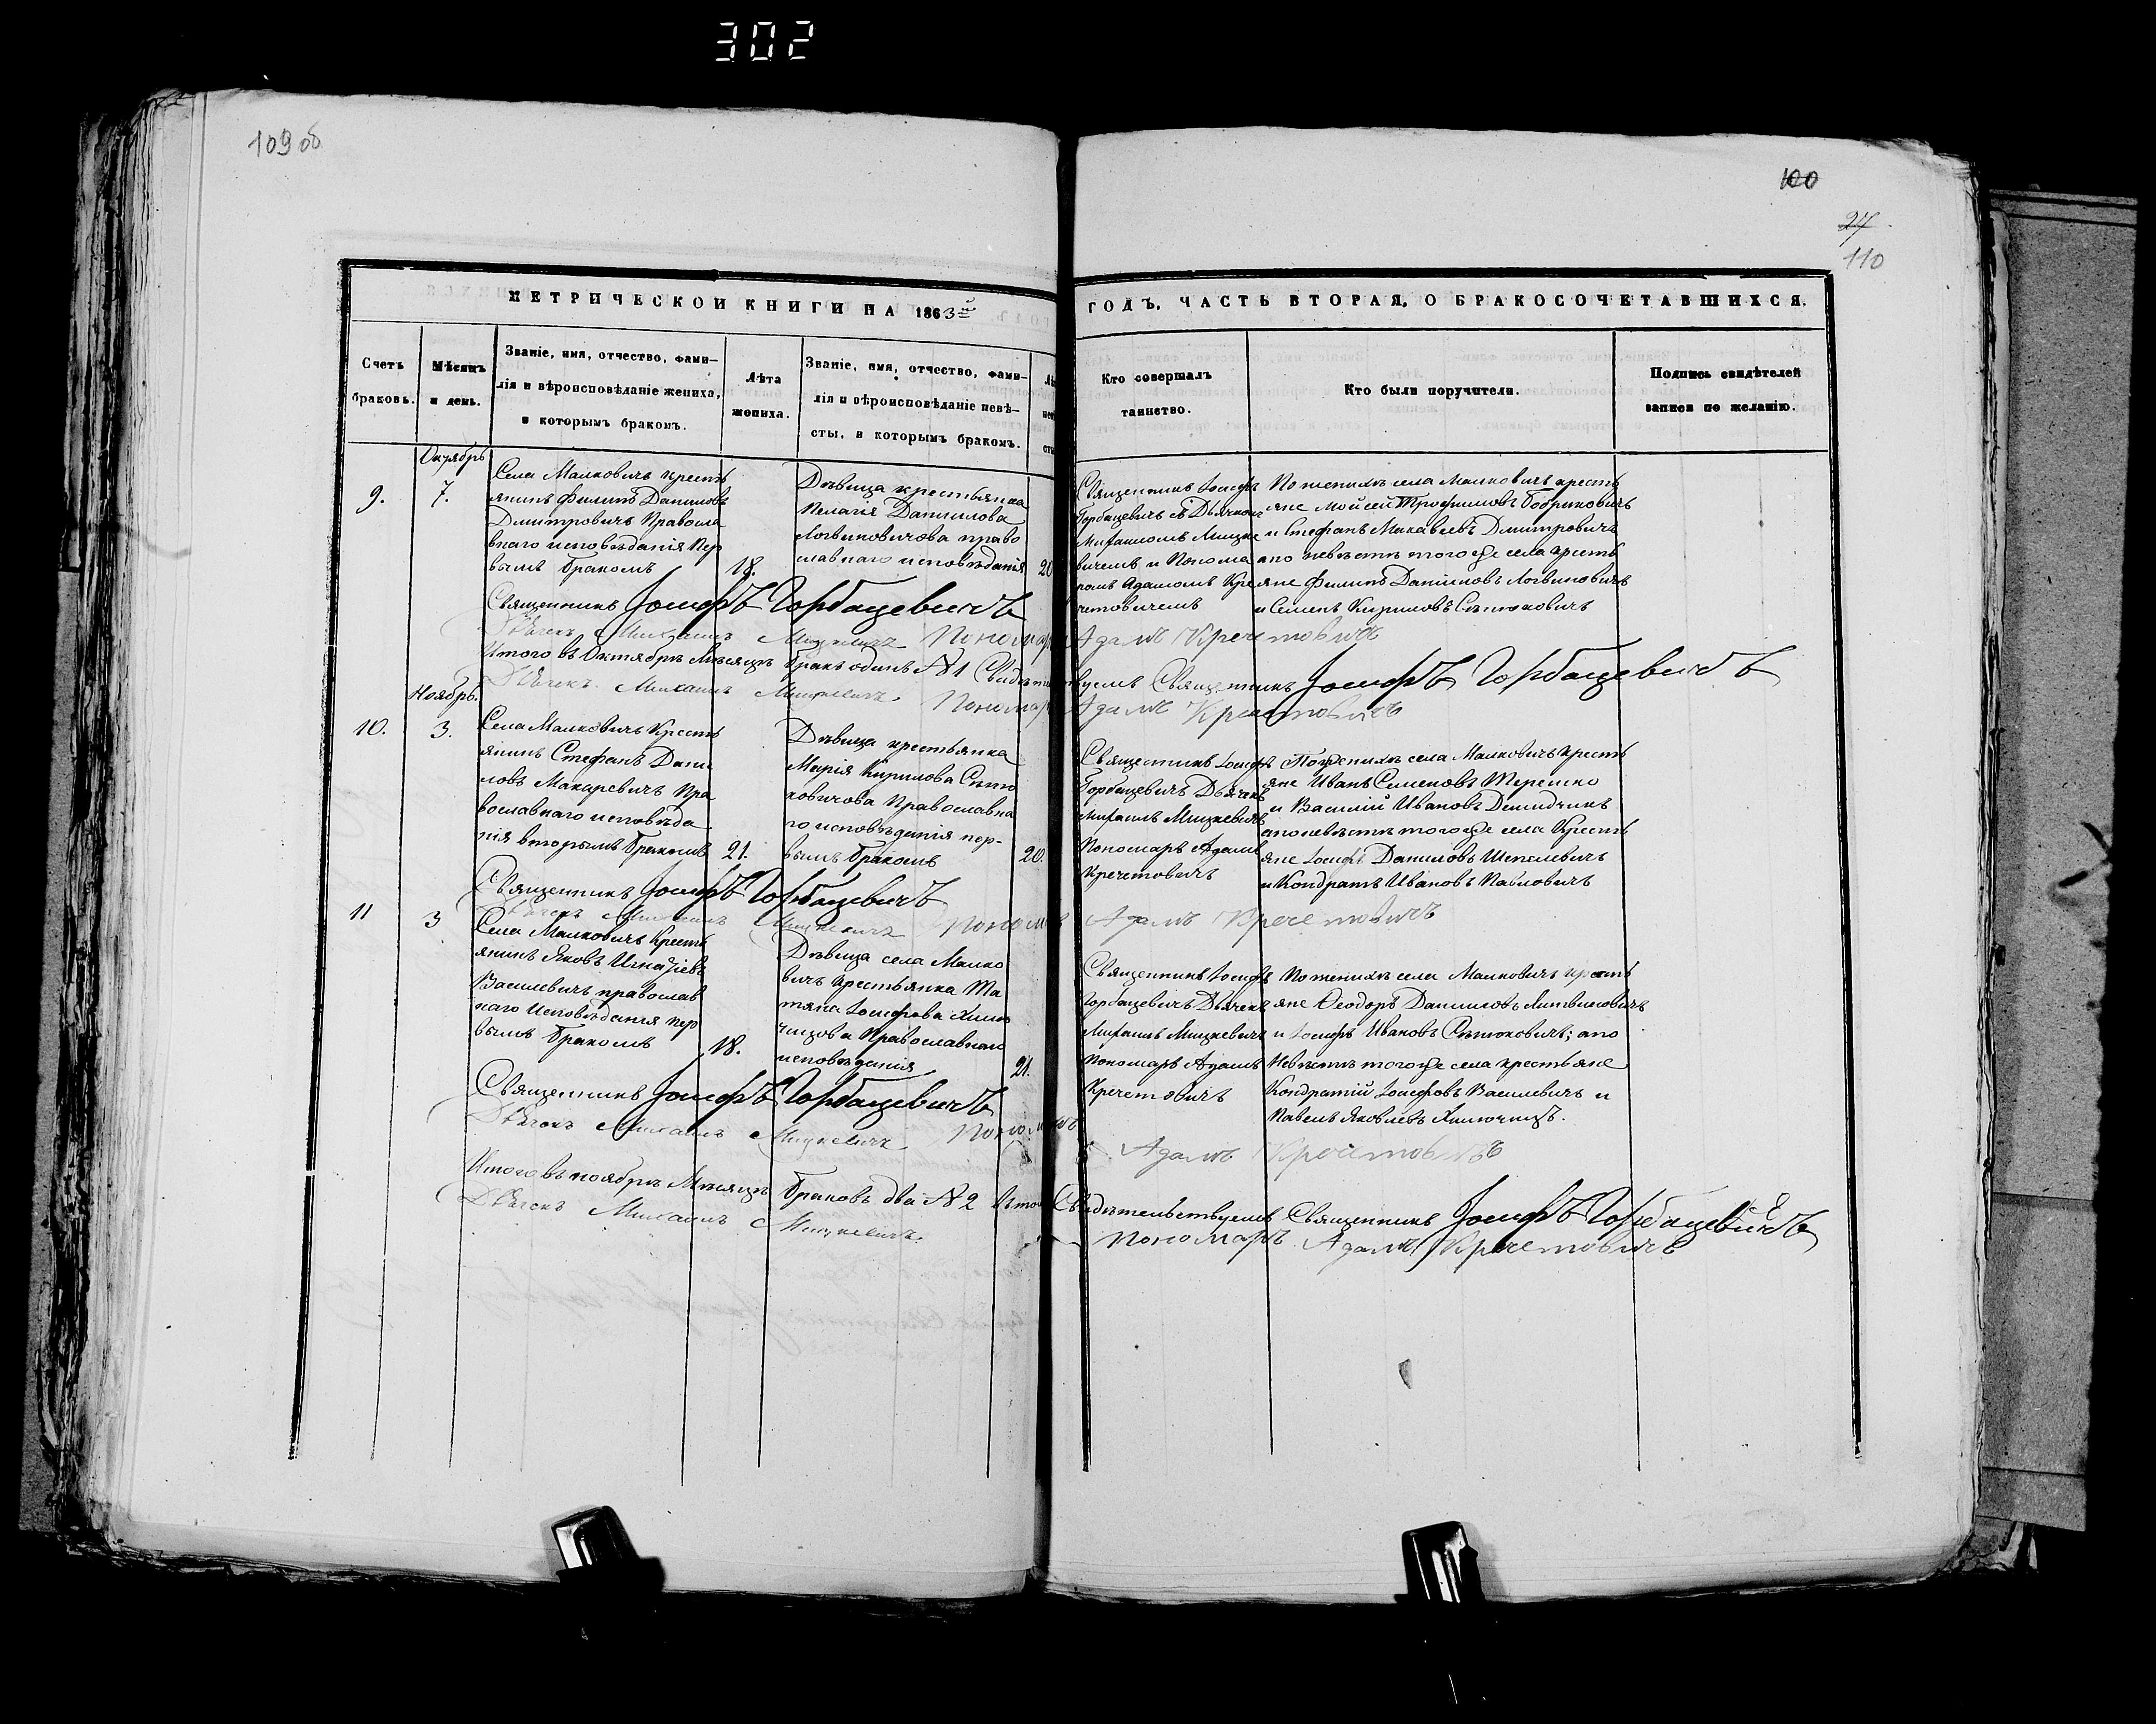 302
109 об
100
27
110
МЕТРИЧЕСКОЙ КНИГИ НА 1863й
ГОДЪ, ЧАСТЬ ВТОРАЯ, О БРАКОСОЧЕТАВШИХСЯ.
Счетъ
браковъ.
Мѣсяцъ
и день.
Званіе, имя, отчество, фами-
лія и вѣроисповѣданіе жениха,
и которымъ бракомъ.
Лѣта
жениха.
Званіе, имя, отчество, фами-
лія и вѣроисповѣданіе невѣ-
сты, и которымъ бракомъ.
Кто совершалъ
таинство.
Кто были поручители.
Подпись свидѣтелей
записи по желанію.
Октябрь
9.
7.
Села Малковичъ крестъ
янинъ Филипъ Даниловъ
Дмитровичъ Правосла
внаго исповѣданія пер
вымъ бракомъ
18.
Дѣвица крестьянка
Пелагія Данилова
Логвиновичова право
славнаго исповѣданія
20
Священникъ Іосифъ
Горбацевичъ съ Дьячкомъ
Михаиломъ Мицке
вичемъ и Понома
ромъ Адамомъ Кре
четовичемъ
По женихѣ села Малковичъ кресть
яне Мойсей Трофимовъ Бобриковичъ
и Стефанъ Макавеевъ Дмитровичъ
а по невѣстѣ того же села кресть
яне Филипъ Даниловъ Логвиновичъ
и Семенъ Кириловъ Сѣтюковичъ
Священникъ Іосифъ Горбацевичъ
Дьячекъ Михаилъ Мицкевичъ Пономарь Адамъ Кречетовичъ
Итого въ Октябрѣ Мѣсяцѣ бракъ одинъ № 1 Свидѣтельствуемъ Священникъ Іосифъ Горбацевичъ
Дьячекъ Михаилъ Мицкевичъ. Пономарь Адамъ Кречетовичъ
Ноябрь.
10.
3.
Села Малковичъ Кресть
янинъ Стефанъ Дани
ловъ Макаревичъ Пра
вославнаго исповѣда
нія вторымъ бракомъ
21.
Дѣвица крестьянка
Марія Кирилова Сѣтю
ковичова Православна
го исповѣданія пер-
вымъ бракомъ
20.
Священникъ Іосифъ
Горбацевичъ Дьячекъ
Михаилъ Мицкевичъ
Пономарь Адамъ
Кречетовичъ
По женихѣ села Малковичъ кресть
яне Иванъ Семеновъ Терешко
и Василій Ивановъ Демидчикъ
а по невѣстѣ того же села Кресть
яне Іосифъ Даниловъ Шепелевичъ
и Кондратъ Ивановъ Павловичъ
Священникъ Іосифъ Горбацевичъ
Дьячекъ Михаилъ Мицкевичъ Пономарь Адамъ Кречетовичъ
11
3
Села Малковичъ Кресть
янинъ Яковъ Игнатіевъ
Василевичъ православ
наго Исповѣданія пер
вымъ бракомъ
18.
Дѣвица села Малко
вичъ Крестьянка Та
тяна Іосифова
Православнаго
исповѣданія
21.
Священникъ Іосифъ
Горбацевичъ Дьячекъ
Михаилъ Мицкевичъ
Пономарь Адамъ
Кречетовичъ
По женихѣ села Малковичъ кресть
яне Ѳеодоръ Даниловъ Литвиновичъ
и Іосифъ Ивановъ Сѣтюковичъ; а по
Невѣстѣ того же села крестьяне
Кондратій Іосифовъ Василевичъ и
Павелъ Яковлевъ
Священникъ Іосифъ Горбацевичъ
Дьячекъ Михаилъ Мицкевичъ Пономарь Адамъ Кречетовичъ
Итого въ ноябрѣ Мѣсяцѣ браковъ два № 2 въ томъ Свидѣтельствуемъ Священникъ Іосифъ Горбацевичъ
Дьячекъ Михаилъ Мицкевичъ. Пономарь Адамъ Кречетовичъ